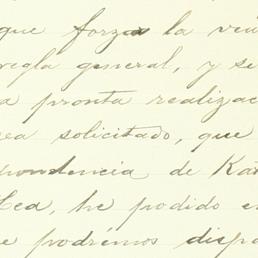 que forzas la ven
regla general, y se
a pronta realizac
sea solicitado, que
pondencia de Kar
Cea, he podido en
e podrémos dispo